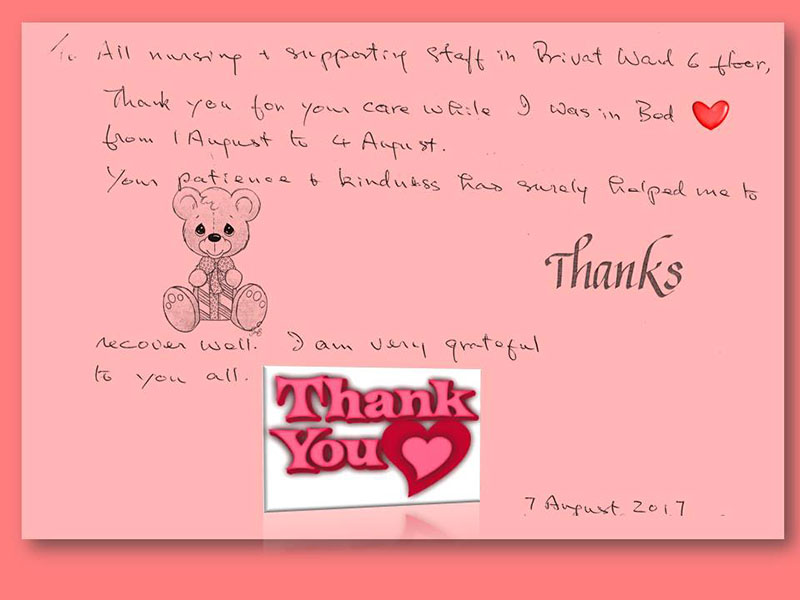 To All nursing + supporting staff in Privat Ward 6 floor,
Thank you for your care while I was in Bed
from 1 August to 4 August.
Your patience & kindness has surely helped me to
Thanks
recover well. I am very grateful
to you all.
Thank
You
7 August 2017